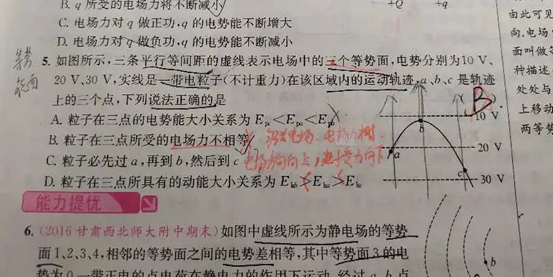 B. q 所受的电场力将不断减小
C. 电场力对 q 做正功,q 的电势能不断增大
D. 电场力对 q 做负功,q 的电势能不断减小
5. 如图所示,三条平行等间距的虚线表示电场中的三个等势面,电势分别为10 V、
20 V、30 V,实线是一带电粒子(不计重力)在该区域内的运动轨迹,a、b、c 是轨迹
上的三个点,下列说法正确的是
A. 粒子在三点的电势能大小关系为 Epc<Epa<Epb
B. 粒子在三点所受的电场力不相等
C. 粒子必先过 a,再到 b,然后到 c
D. 粒子在三点所具有的动能大小关系为 Ekb>Eka>Ekc
B
10 V
20 V
30 V
a
b
c
能力提优
6. (2016 甘肃西北师大附中期末)如图中虚线所示为静电场的等势
面1、2、3、4,相邻的等势面之间的电势差相等,其中等势面 3 的电
势为 0,一带正电的点电荷在静电力的作用下运动,经过 a、b 点
b
由此可见
向,电场
面叫做等
种描述
处处与
上移动
两等势